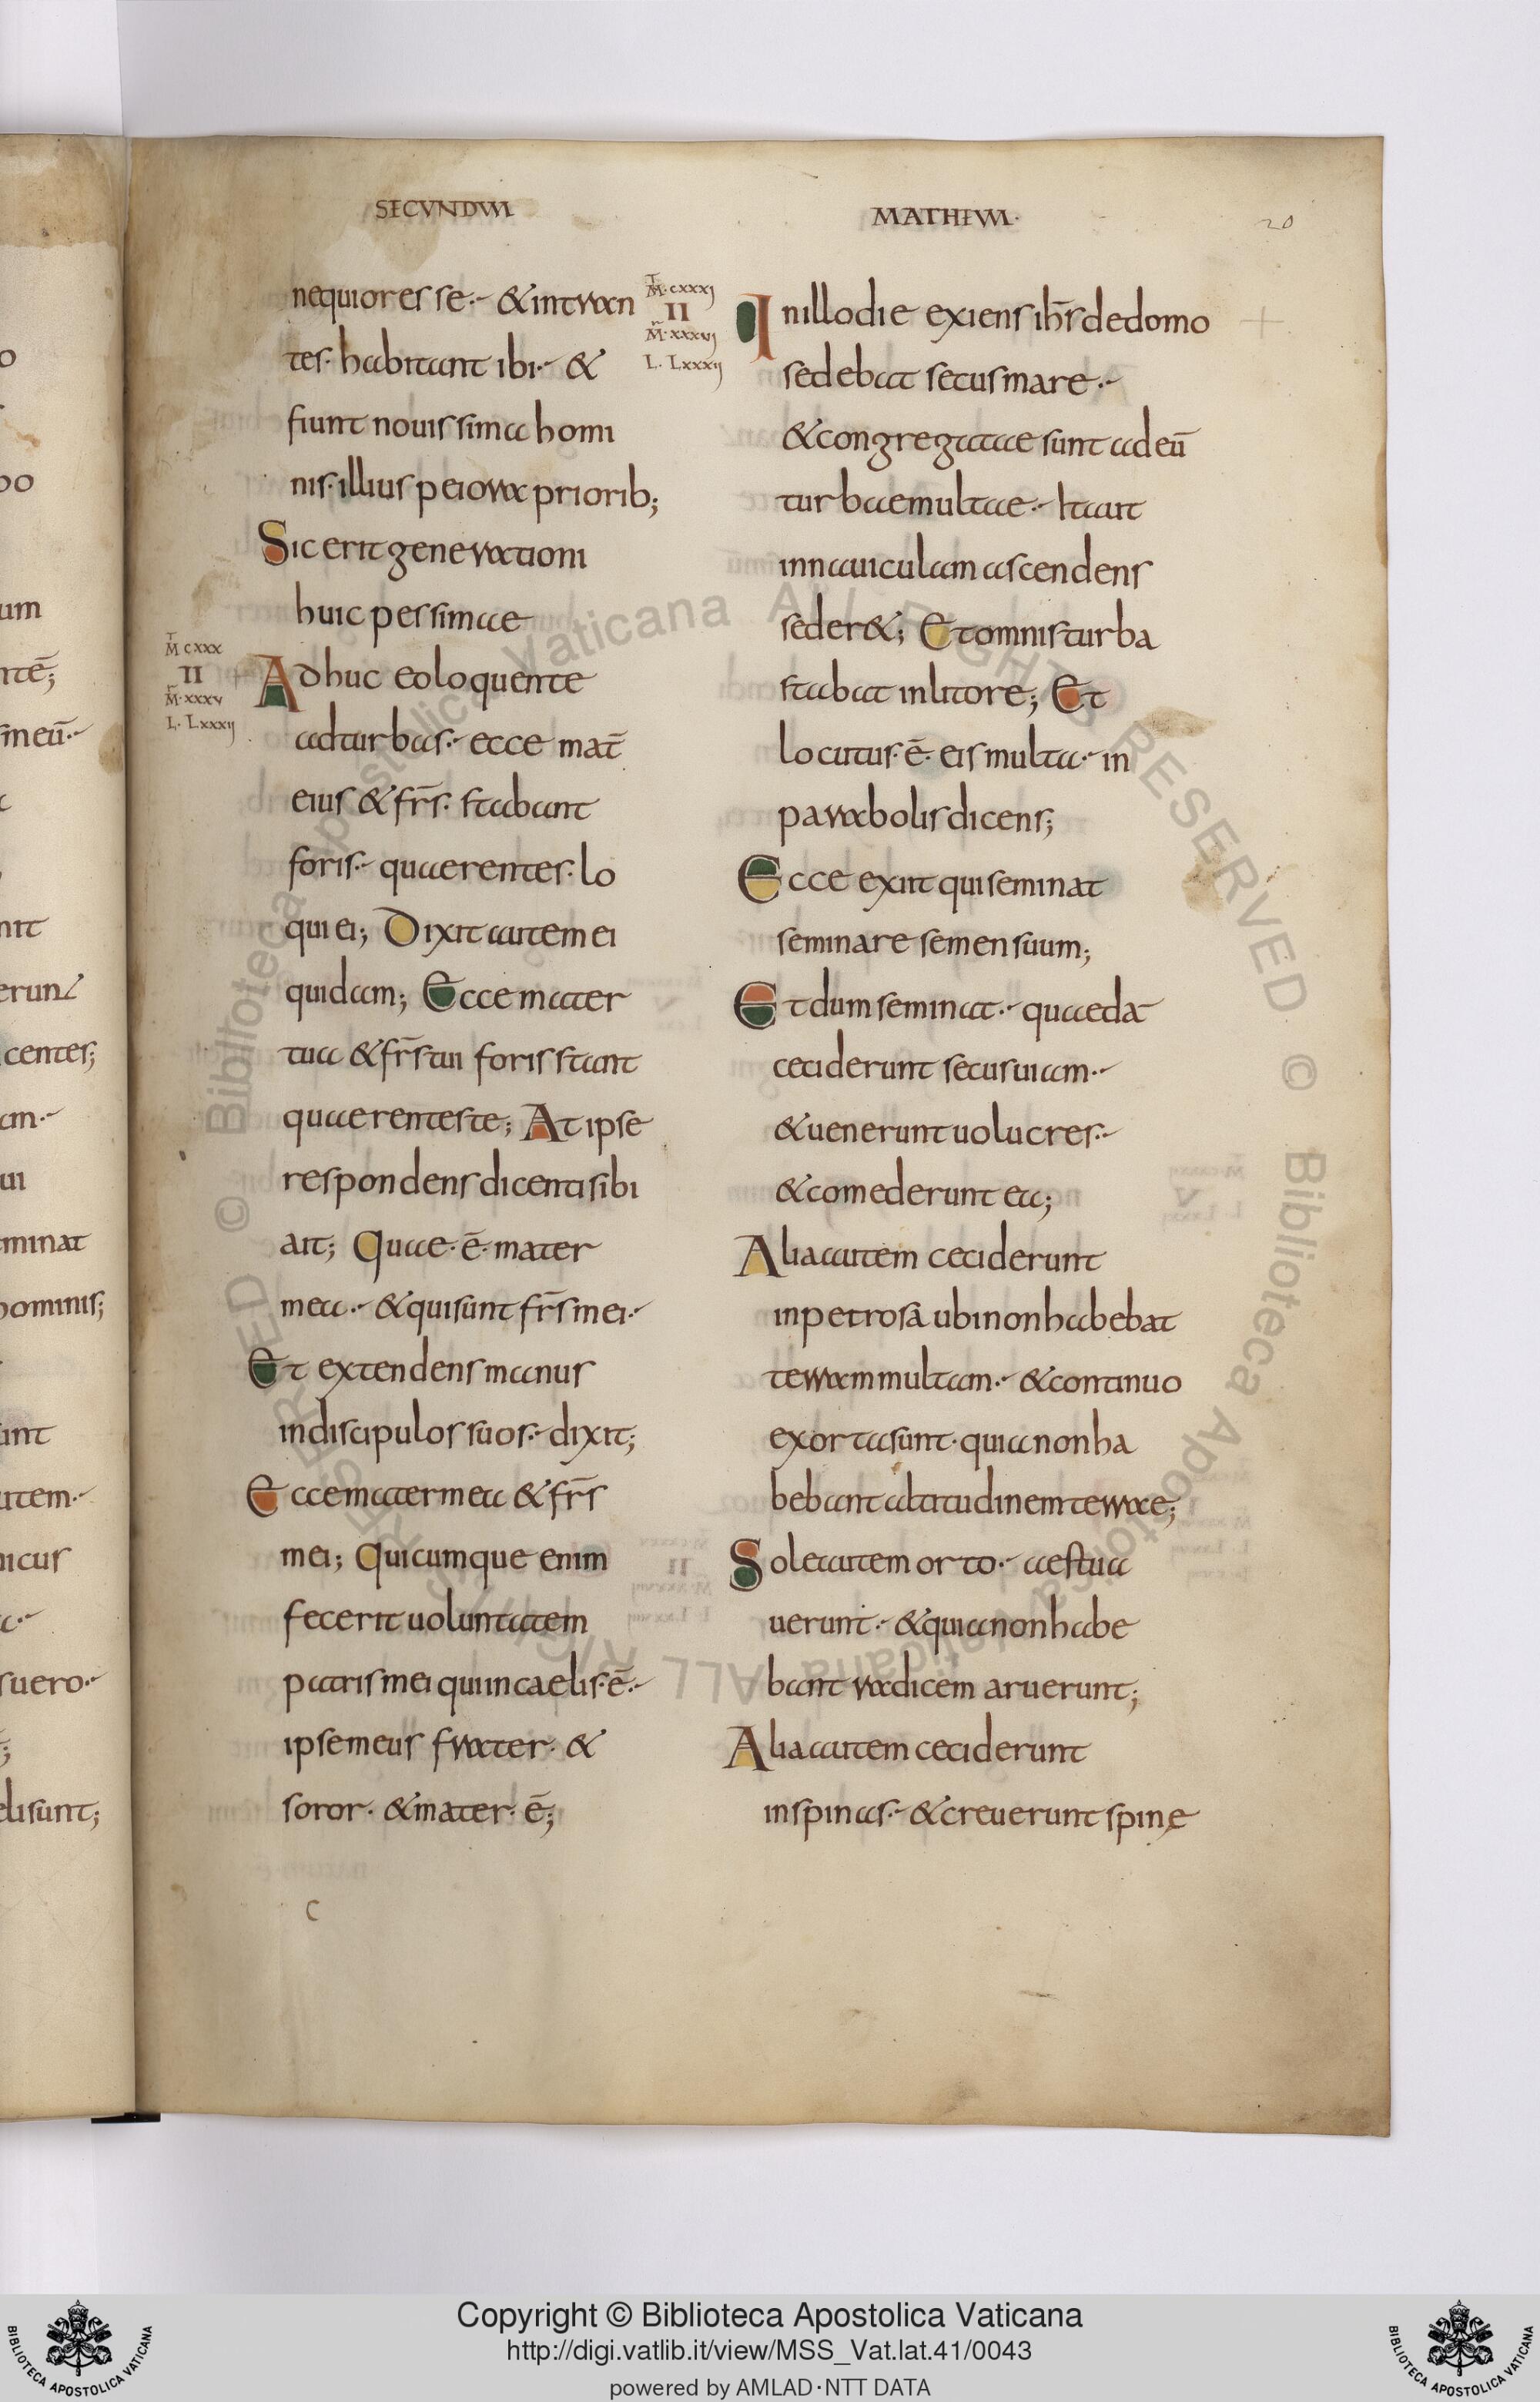 SECVNDVM
MATHEVM·
20
nequiores se·- & intran
tes· habitant ibi·- &
fiunt nouissima homi
nis· illius peiora priorib;
Sic erit generationi
huic pessimae
M̄ CXXX
II
M̄·XXXV
L·LXXXIJ
Adhuc eo loquente
ad turbas·- ecce mat̄
eius & frs̄· stabant
foris·- quaerentes· lo
qui ei; Dixit autem ei
quidam; Ecce mater
tua & frs̄ tui foris stant
quaerentes te; At ipse
respondens dicenti sibi
ait; Quae· ē· mater
mea·- & qui sunt frs̄ mei·-
Et extendens manus
in discipulos suos·- dixit;
Ecce mater mea & frs̄
mei; Quicumque enim
fecerit uoluntatem
patris mei qui in caelis· ē·-
ipse meus frater· &
soror· & mater· ē;
C
M̄·CXXXJ
II
M̄·XXXVJ
L·LXXXIJ
In illo die exiens ihs̄ de domo
sedebat secus mare·-
& congregatae sunt ad eū
turbae multae·- Ita ut
in nauiculam ascendens
seder&; Et omnis turba
stabat in litore; Et
locutus· ē· eis multa·- in
parabolis dicens;
Ecce exiit qui seminat
seminare semen suum;
Et dum seminat·- quaedā
ceciderunt secus uiam·-
& uenerunt uolucres·-
& comederunt ea;
Alia autem ceciderunt
in petrosā ubi non habebat
terram multam·- & continuo
exorta sunt· quia non ha
bebant altitudinem terrae;
Sole autem orto·- aestua
uerunt·- & quia non habe
bant radicem aruerunt;
Alia autem ceciderunt
in spinas·- & creuerunt spinę
o
um
ntē;
meū·-
nit
erunt
centes;
am·-
ui
minat
hominis;
unt
utem·-
nicus
suero·-
eli sunt;
© Biblioteca Apostolica Vaticana ALL RIGHTS RESERVED © Biblioteca Apostolica Vaticana ALL RIGHTS RESERVED
Copyright © Biblioteca Apostolica Vaticana
http://digi.vatlib.it/view/MSS_Vat.lat.41/0043
powered by AMLAD·NTT DATA
BIBLIOTECA APOSTOLICA VATICANA
BIBLIOTECA APOSTOLICA VATICANA